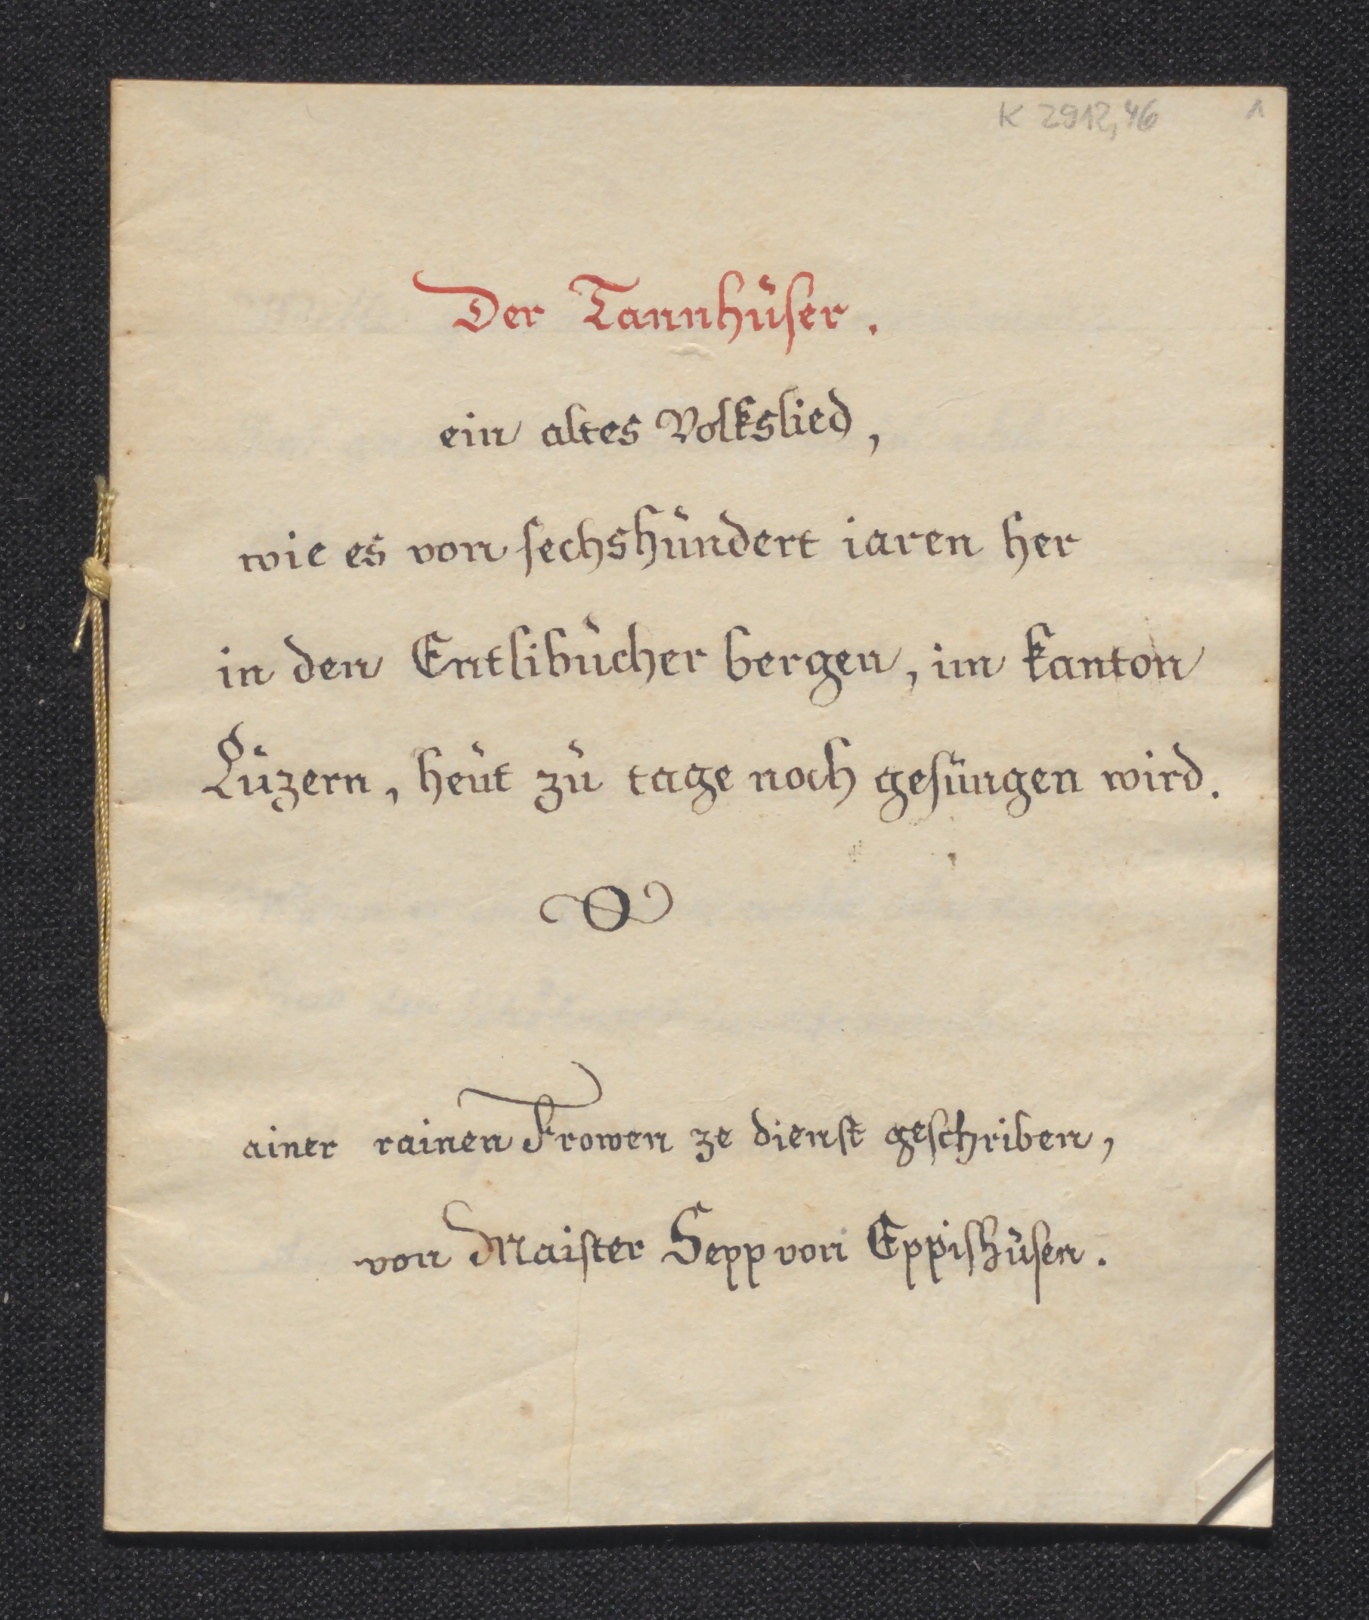 K 2912,46 1
Der Tannhuser.
ein altes Volkslied,
wie es von sechshundert iaren her
in den Entlibucher bergen, im kanton
Luzern, heut zu tage noch gesungen wird.
ainer rainen Frowen ze dienst geschriben,
von Maister Sepp von Eppishusen.